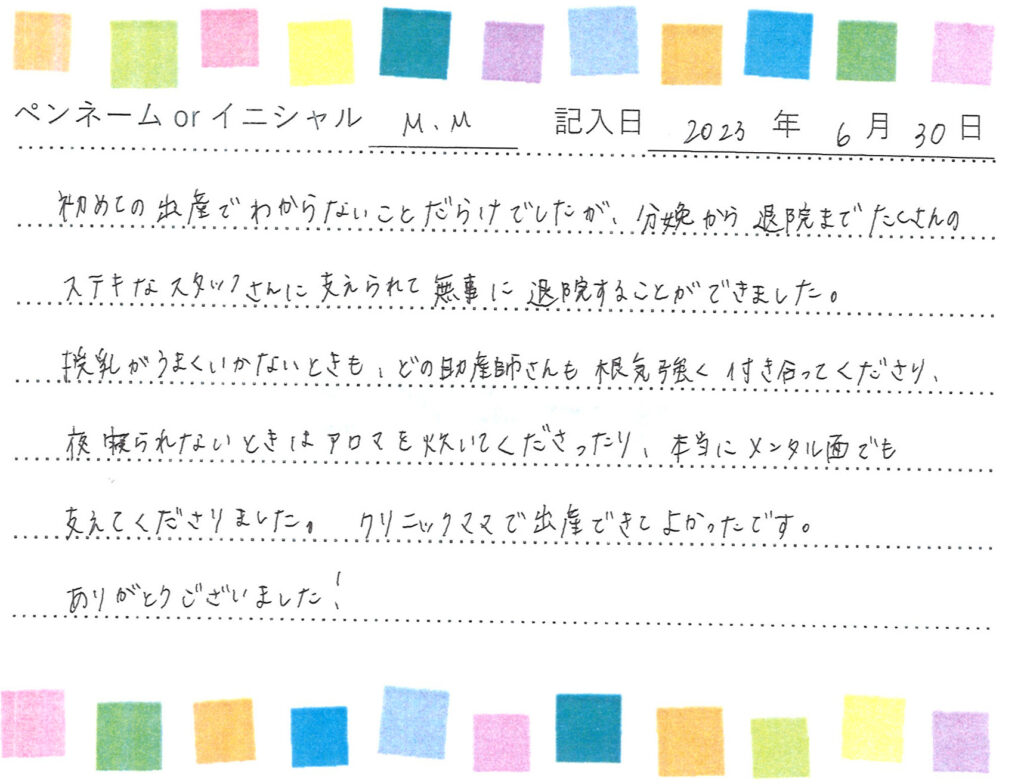 ペンネーム or イニシャル M.M 記入日 2023 年 6 月 30 日
初めての出産でわからないことだらけでしたが、分娩から退院までたくさんの
ステキなスタッフさんに支えられて無事に退院することができました。
授乳がうまくいかないときも、どの助産師さんも根気強く付き合ってくださり、
夜寝られないときはアロマを炊いてくださったり、本当にメンタル面でも
支えてくださりました。 クリニックママで出産できてよかったです。
ありがとうございました!